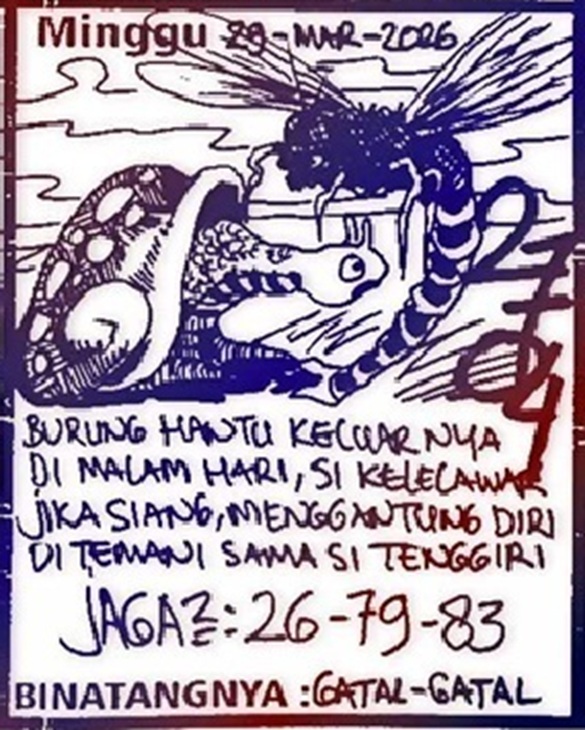 Minggu 29-MAR-2026
2704
BURUNG HANTU KELUARNYA
DI MALAM HARI, SI KELELAWAR
JIKA SIANG, MENGGANTUNG DIRI
DI TEMANI SAMA SI TENGGIRI
JAGA2 : 26-79-83
BINATANGNYA : GATAL-GATAL